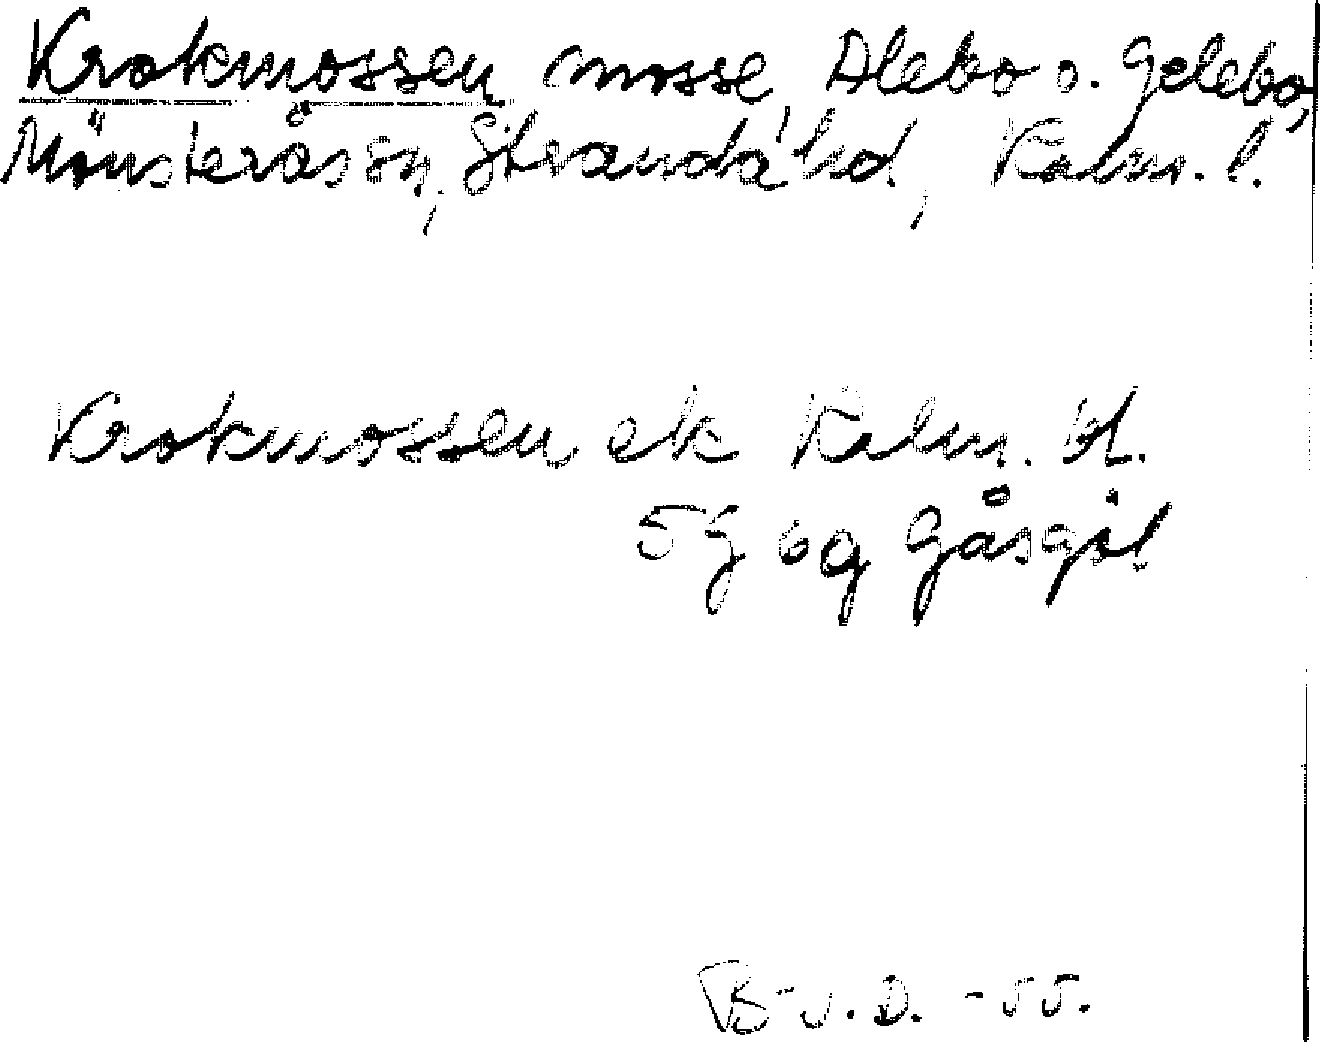 Krokmossen, mosse, Alebo o. Gelebo,
Mönsterås sn, Stranda hd, Kalm. l.
Krokmossen ek Kalm. bl.
5g 6g Gåsgöl
B-v. D. -55.